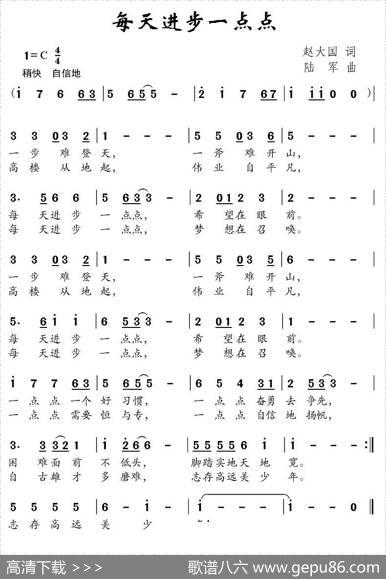 每天进步一点点
1=C 4/4
赵大国 词
稍快 自信地
陆军 曲
(i 7 6 63 | 5 655 - | 2 i 7 67 | i ii00)
3 3 03 2 | 1 - - - | 5 5 03 6 | 5 - - -
一步难登天, 一斧难开山,
高楼从地起, 伟业自平凡,
3· 5 6 6 | 5 633 - | 2 012 3 | 2 - - -
每天进步一点点, 希望在眼前。
每天进步一点点, 梦想在召唤。
3 3 03 2 | 1 - - - | 5 5 03 6 | 5 - - -
一步难登天, 一斧难开山,
高楼从地起, 伟业自平凡,
5· 6 i i | 6 533 - | 2 012 3 | 1 - - -
每天进步一点点, 希望在眼前。
每天进步一点点, 梦想在召唤。
i 7 7 63 | 5 6 3 - | 6 5 4 31 | 2 3 2 -
一点点一个好习惯, 一点点奋勇去争先,
一点点需要恒与专, 一点点自信地扬帆,
3· 3321 | i 266 - | 55555 6 i | i - - :||
困难面前不低头, 脚踏实地天地宽。
自古雄才多磨难, 志存高远美少年。
5 5 5 5 | 6 - i - | i - - - | i 0 0 0 ||
志存高远美少
高清下载 >>>
歌谱八六 www.gepu86.com